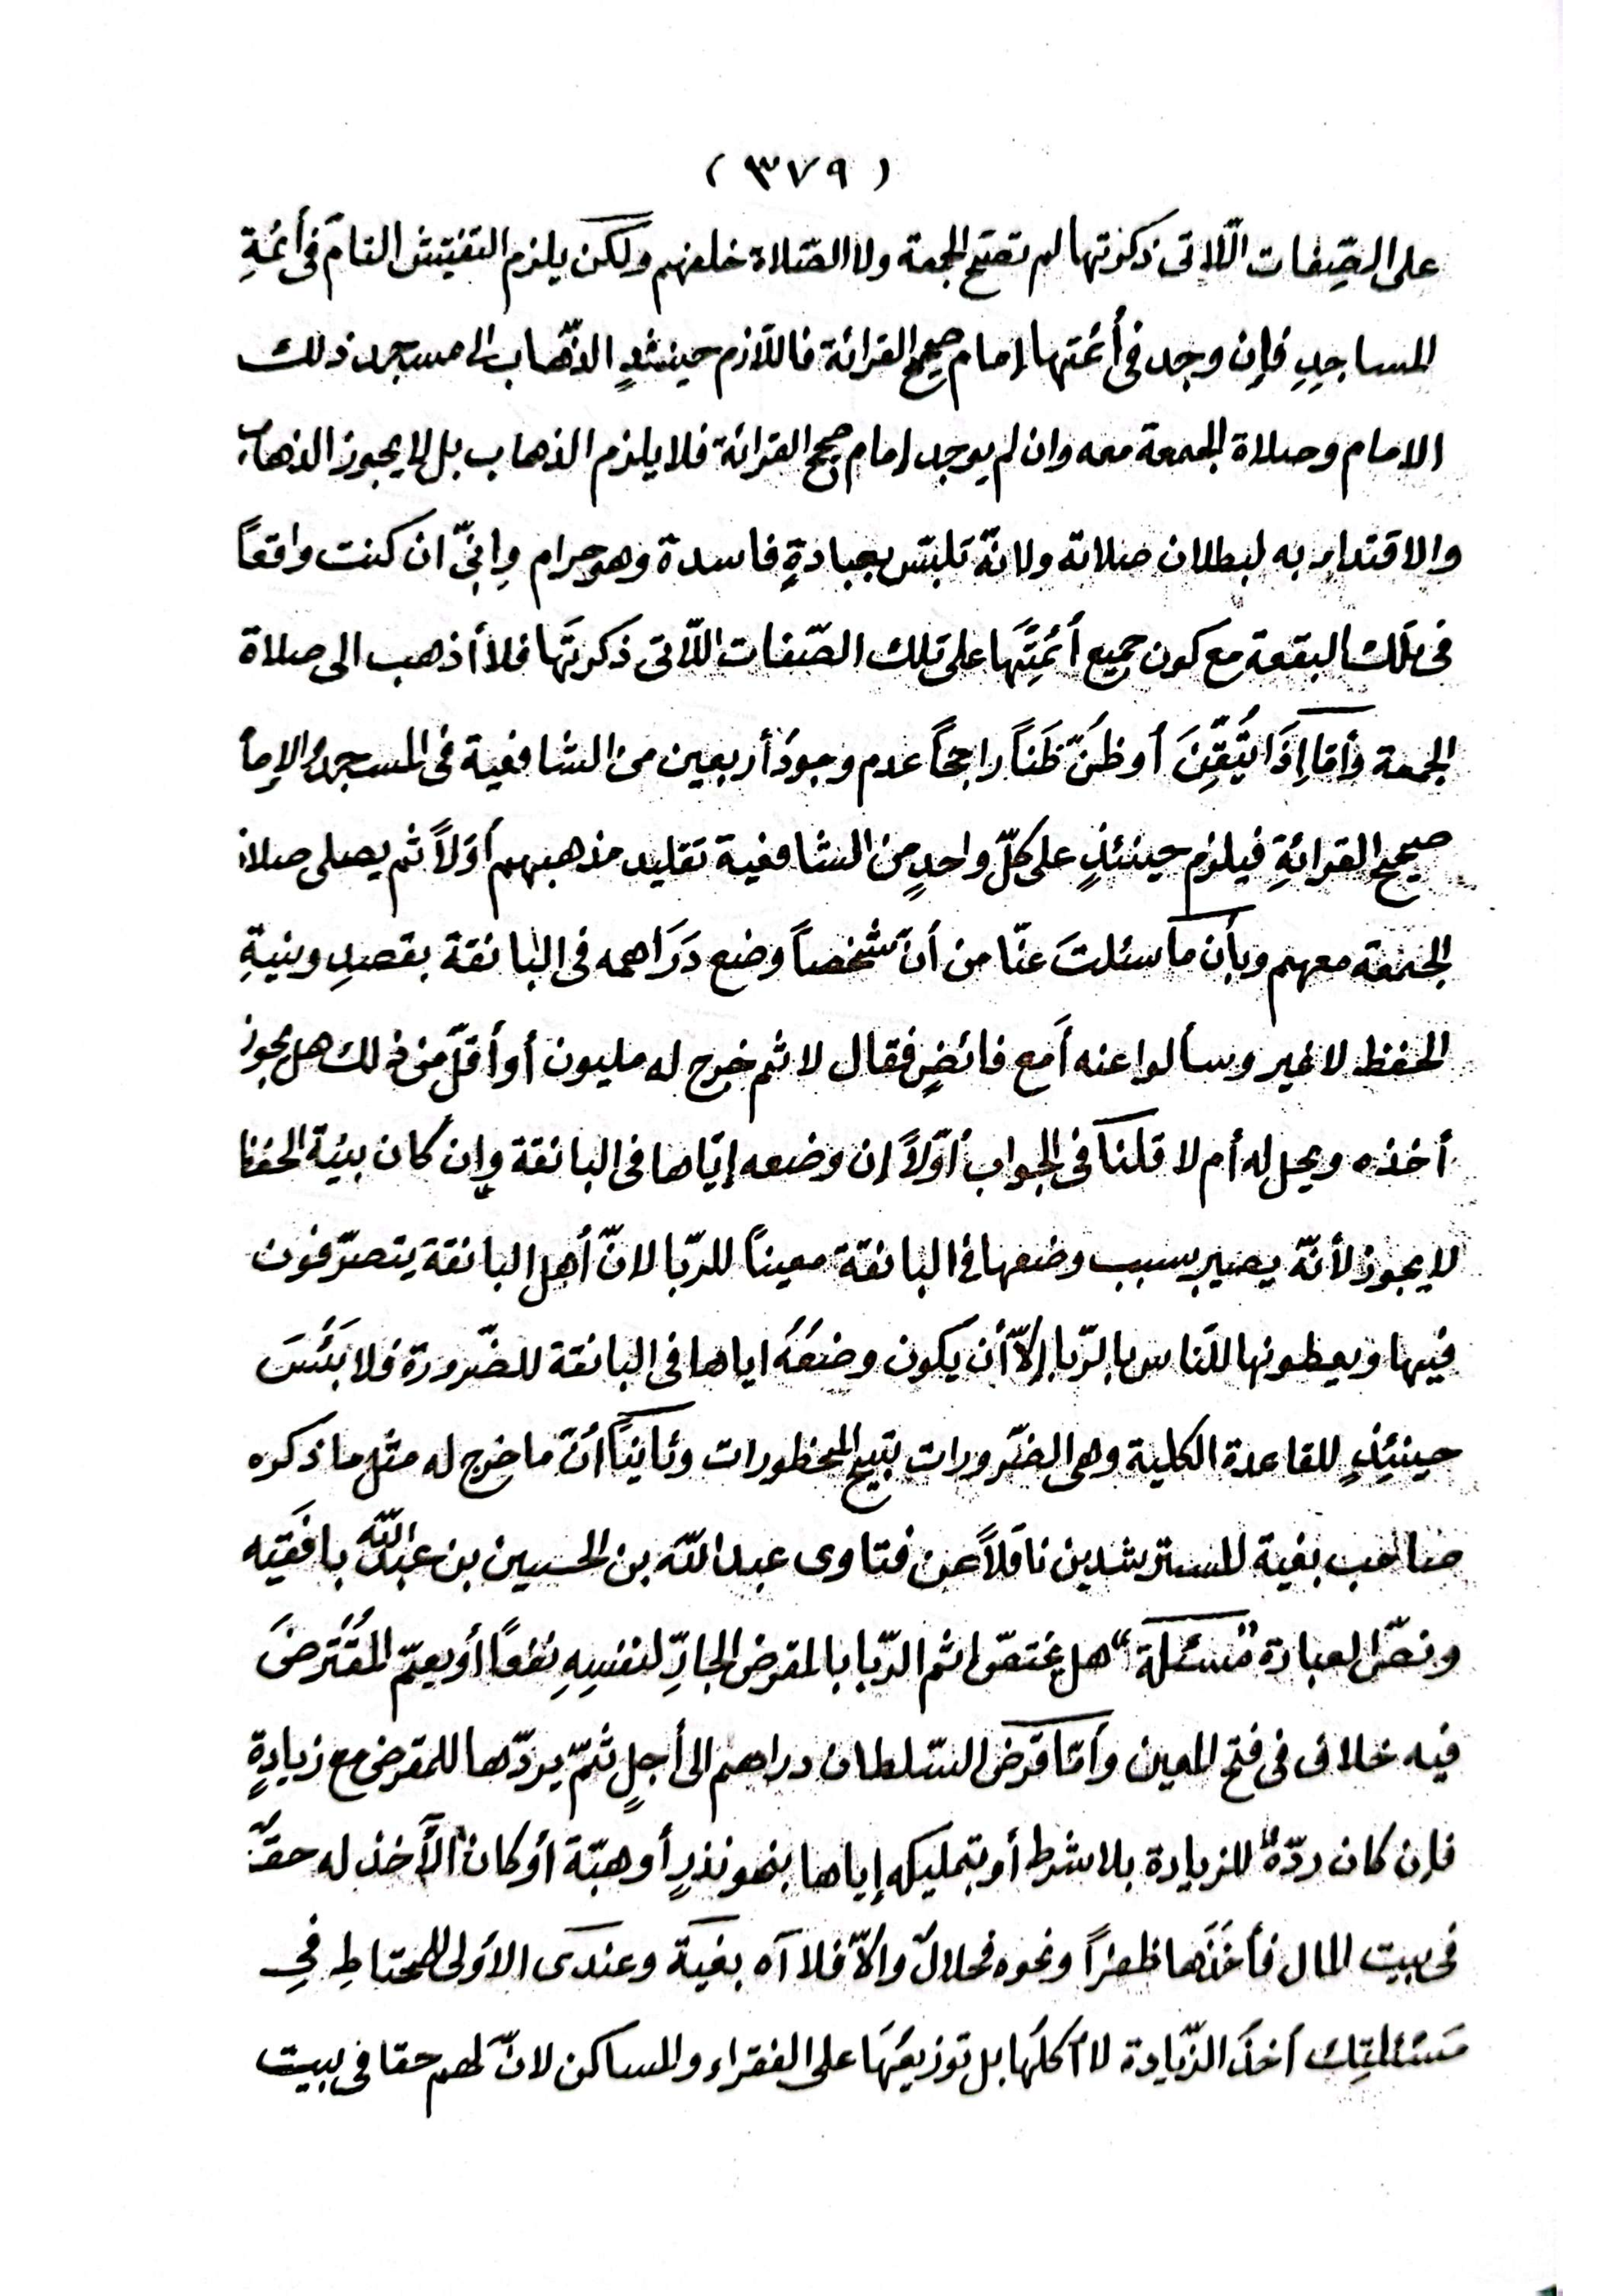 ( ٣٧٩ )
على الصّفات الّلاتى ذكرتها لم تصحّ الجمعة ولا الصّلاة خلفهم ولكن يلزم التفتيش التامّ فى أئمةِ
المساجدِ فإن وجد فى أئمتها إمام صحيح القرائة فاللّازم حينئذٍ الذّهاب الى مسجد ذلك
الامام وصلاة الجمعة معه وان لم يوجد إمام صحيح القرائة فلا يلزم الذهاب بل لا يجوز الذهاب
والاقتداء به لبطلان صلاته ولانّه تلبّس بعبادةٍ فاسدة وهو حرام وإنّى ان كنت واقعاً
فى تلك البقعة مع كون جميع أئمتها على تلك الصّفات اللّاتى ذكرتَها فلا أذهب الى صلاة
الجمعة وأمّا إذَا تُيُقِّنَ أو ظُنّ ظَناً راجحاً عدم وجودُ أربعين من الشافعية فى المسجد والإمام
صحيح القرائةِ فيلزم حينئذٍ على كلّ واحدٍ من الشافعية تقليد مذهبهم أوّلاً ثم يصلى صلاة
الجمعة معهم وبأن ما سئلتَ عنّا من أنّ شخصاً وضع دَرَاهمه فى البانقة بقصدِ وبنيةِ
الحفظ لا غير وسألوا عنه أمع فائضٍ فقال لا ثم خرج له مليون أو أقلّ من ذلك هل يجوز
أخذه ويحل له أم لا قلنا فى الجواب أوّلاً إن وضعه إيّاها فى البانقة وإن كان بنيّة الحفظ
لا يجوز لأنّه يصير بسبب وضعها فى البانقة معيناً للرّبا لانّ أهل البانقة يتصرّفون
فيها ويعطونها للنّاس بالرّبا إلّا أن يكون وضعُهُ اياها فى البانقة للضّرورة فلا بَئسَ
حينئذٍ للقاعدة الكلية وهى الضّرورات تبيح المحظورات وثانياً أنّ ما خرج له مثل ما ذكره
صاحب بغية المسترشدين ناقلاً عن فتاوى عبد اللّه بن الحسين بن عبد اللّه بافقيه
ونصّ العبادة "مسئلة" هل يختصّ إثم الرّبا بالمقرض الجارِّ لنفسِهِ نفعاً أو يعمّ المُقْتَرضَ
فيه خلاف فى فتح المعين وأمّا قرض السّلطان دراهم الى أجلٍ ثمّ يردّها للمقرض مع زيادةٍ
فإن كان ردّهُ للزيادة بلا شرط أو بتمليكه إياها بنحو نذرٍ أو هبّة أو كان الآخذ له حقٌّ
فى بيت المال فأخذها ظفراً ونحوه فحلالٌ وإلّا فلا آه بغية وعندى الأولى للمحتاطِ فى
مَسْئلتِك أخذُ الزّيادة لا أكلُها بل توزيعُهَا على الفقراء والمساكن لانّ لهم حقا فى بيت